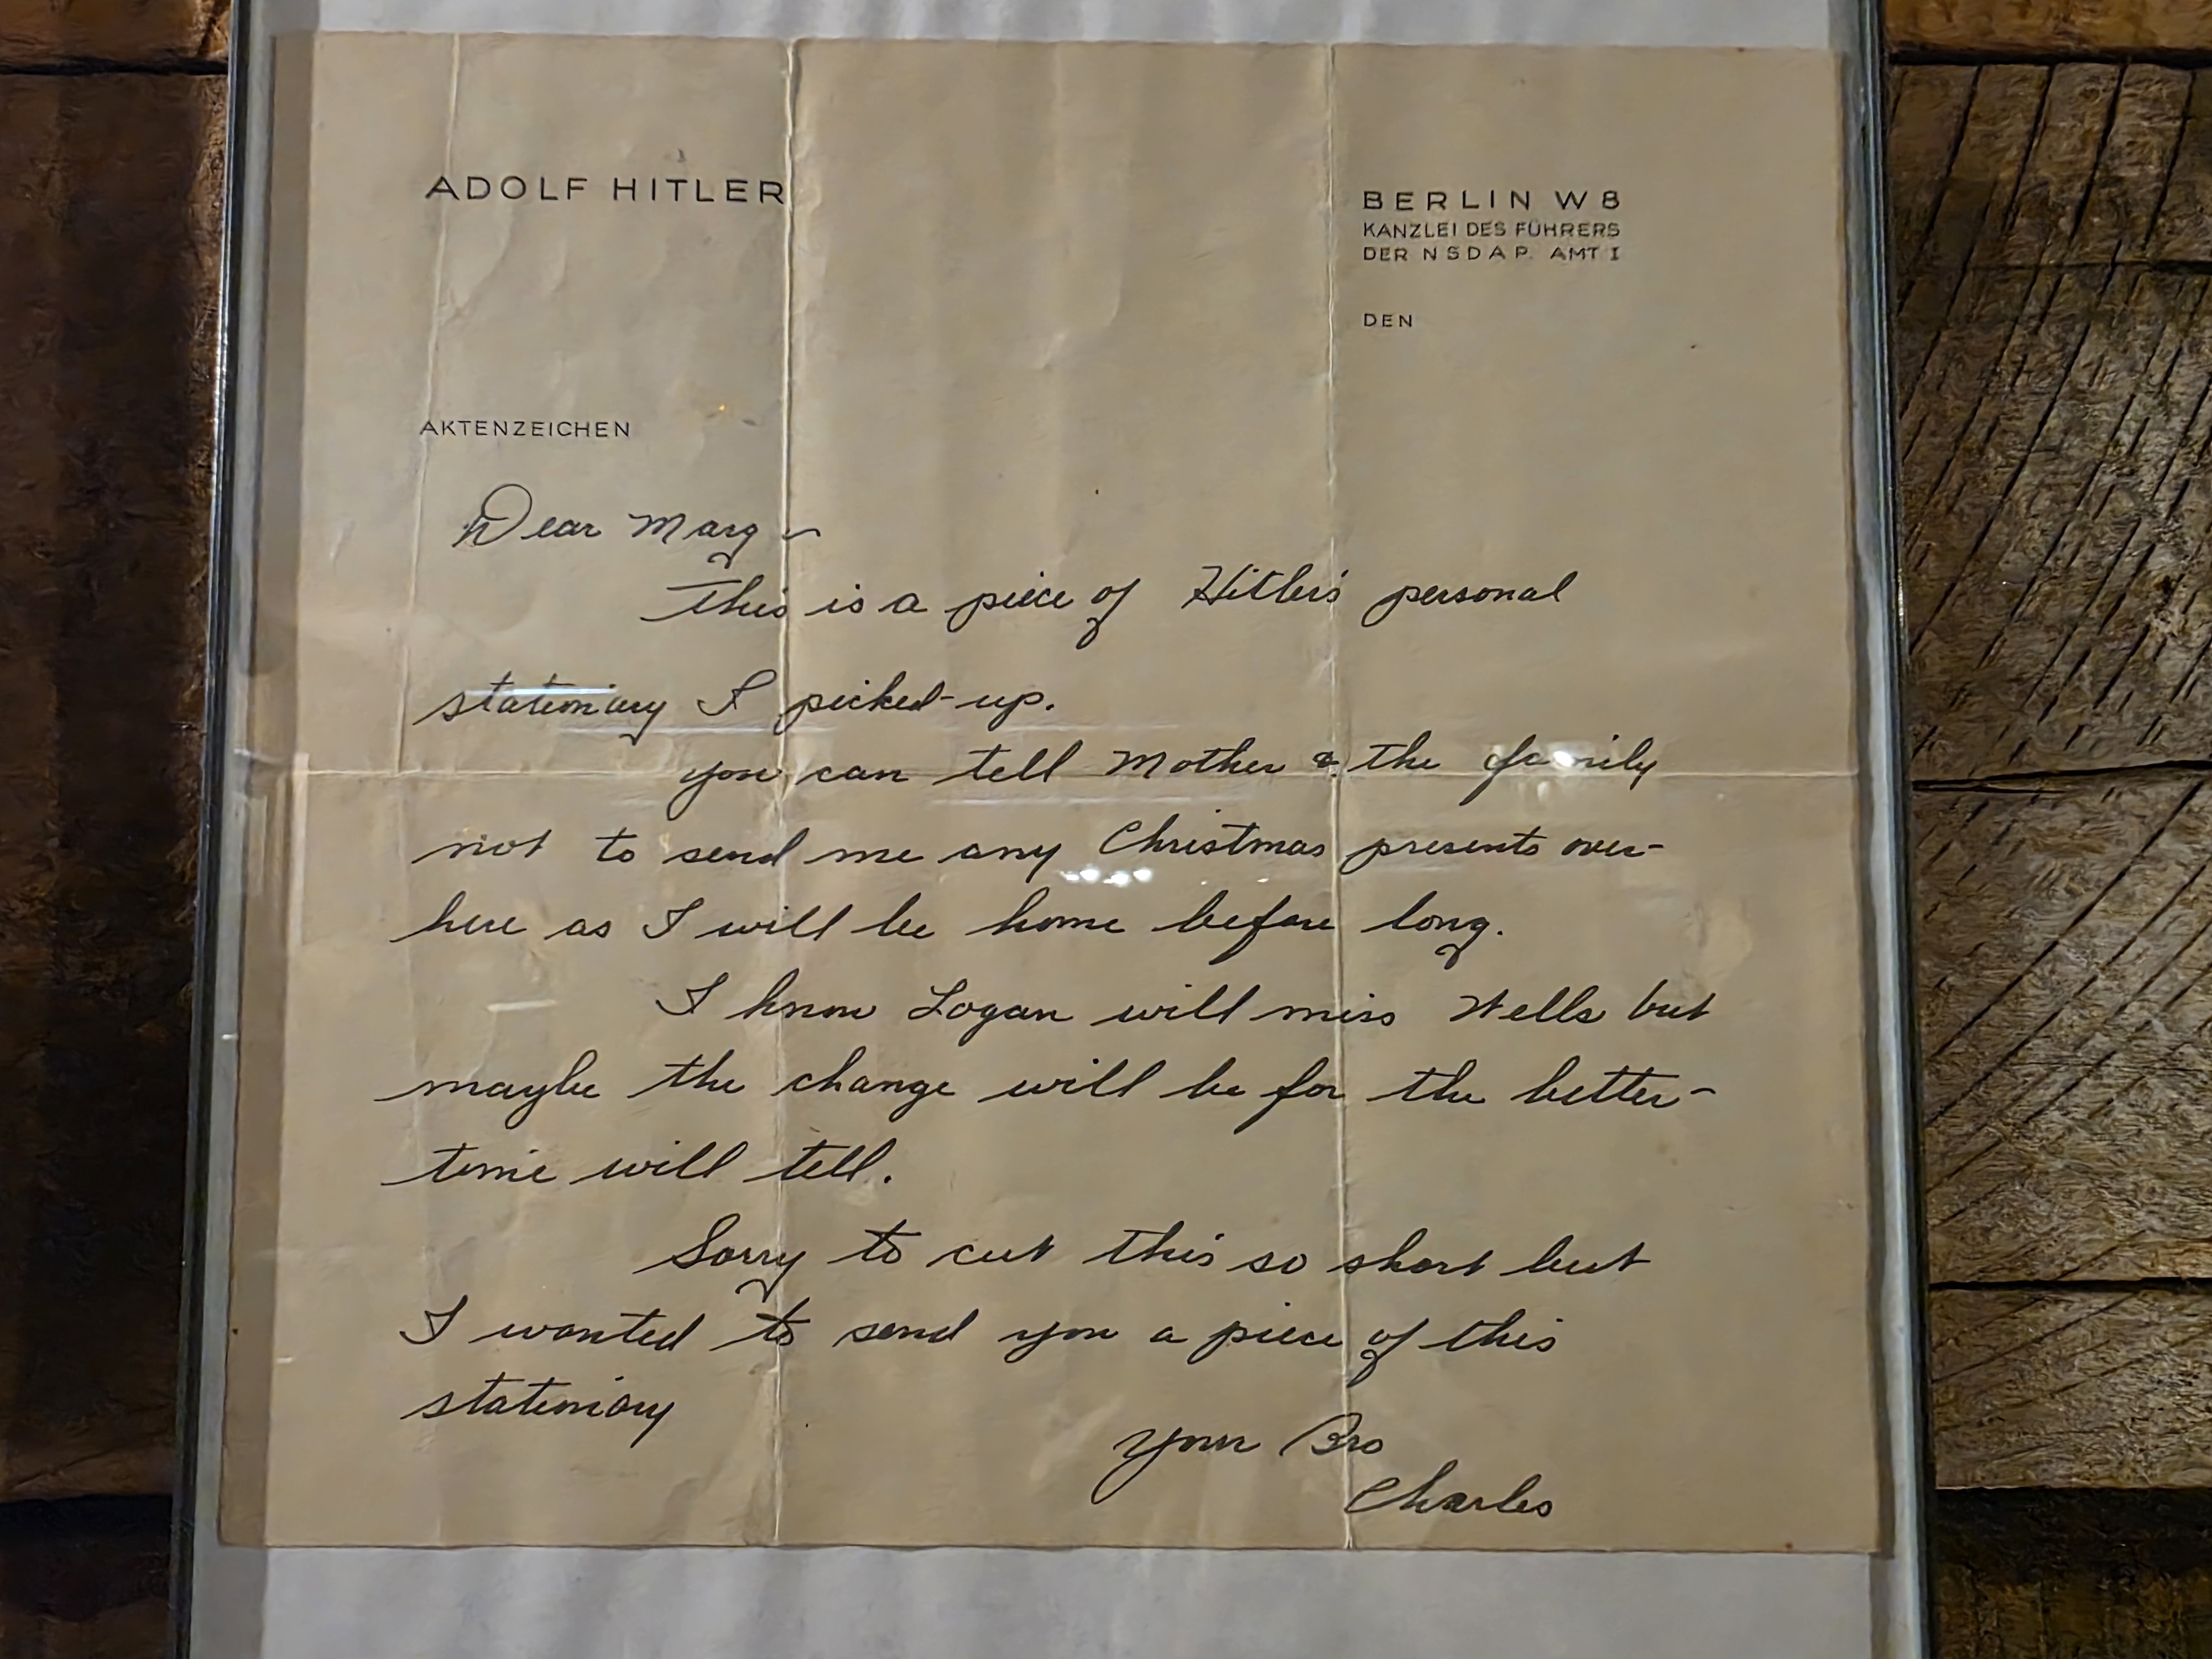 ADOLF HITLER
BERLIN W 8
KANZLEI DES FÜHRERS
DER NSDAP. AMT I
DEN
AKTENZEICHEN
Dear Marg -
This is a piece of Hitler's personal
stationary I picked-up.
You can tell Mother & the family
not to send me any Christmas presents over-
here as I will be home before long.
I know Logan will miss Wells but
maybe the change will be for the better-
time will tell.
Sorry to cut this so short but
I wanted to send you a piece of this
stationary
Your Bro
Charles